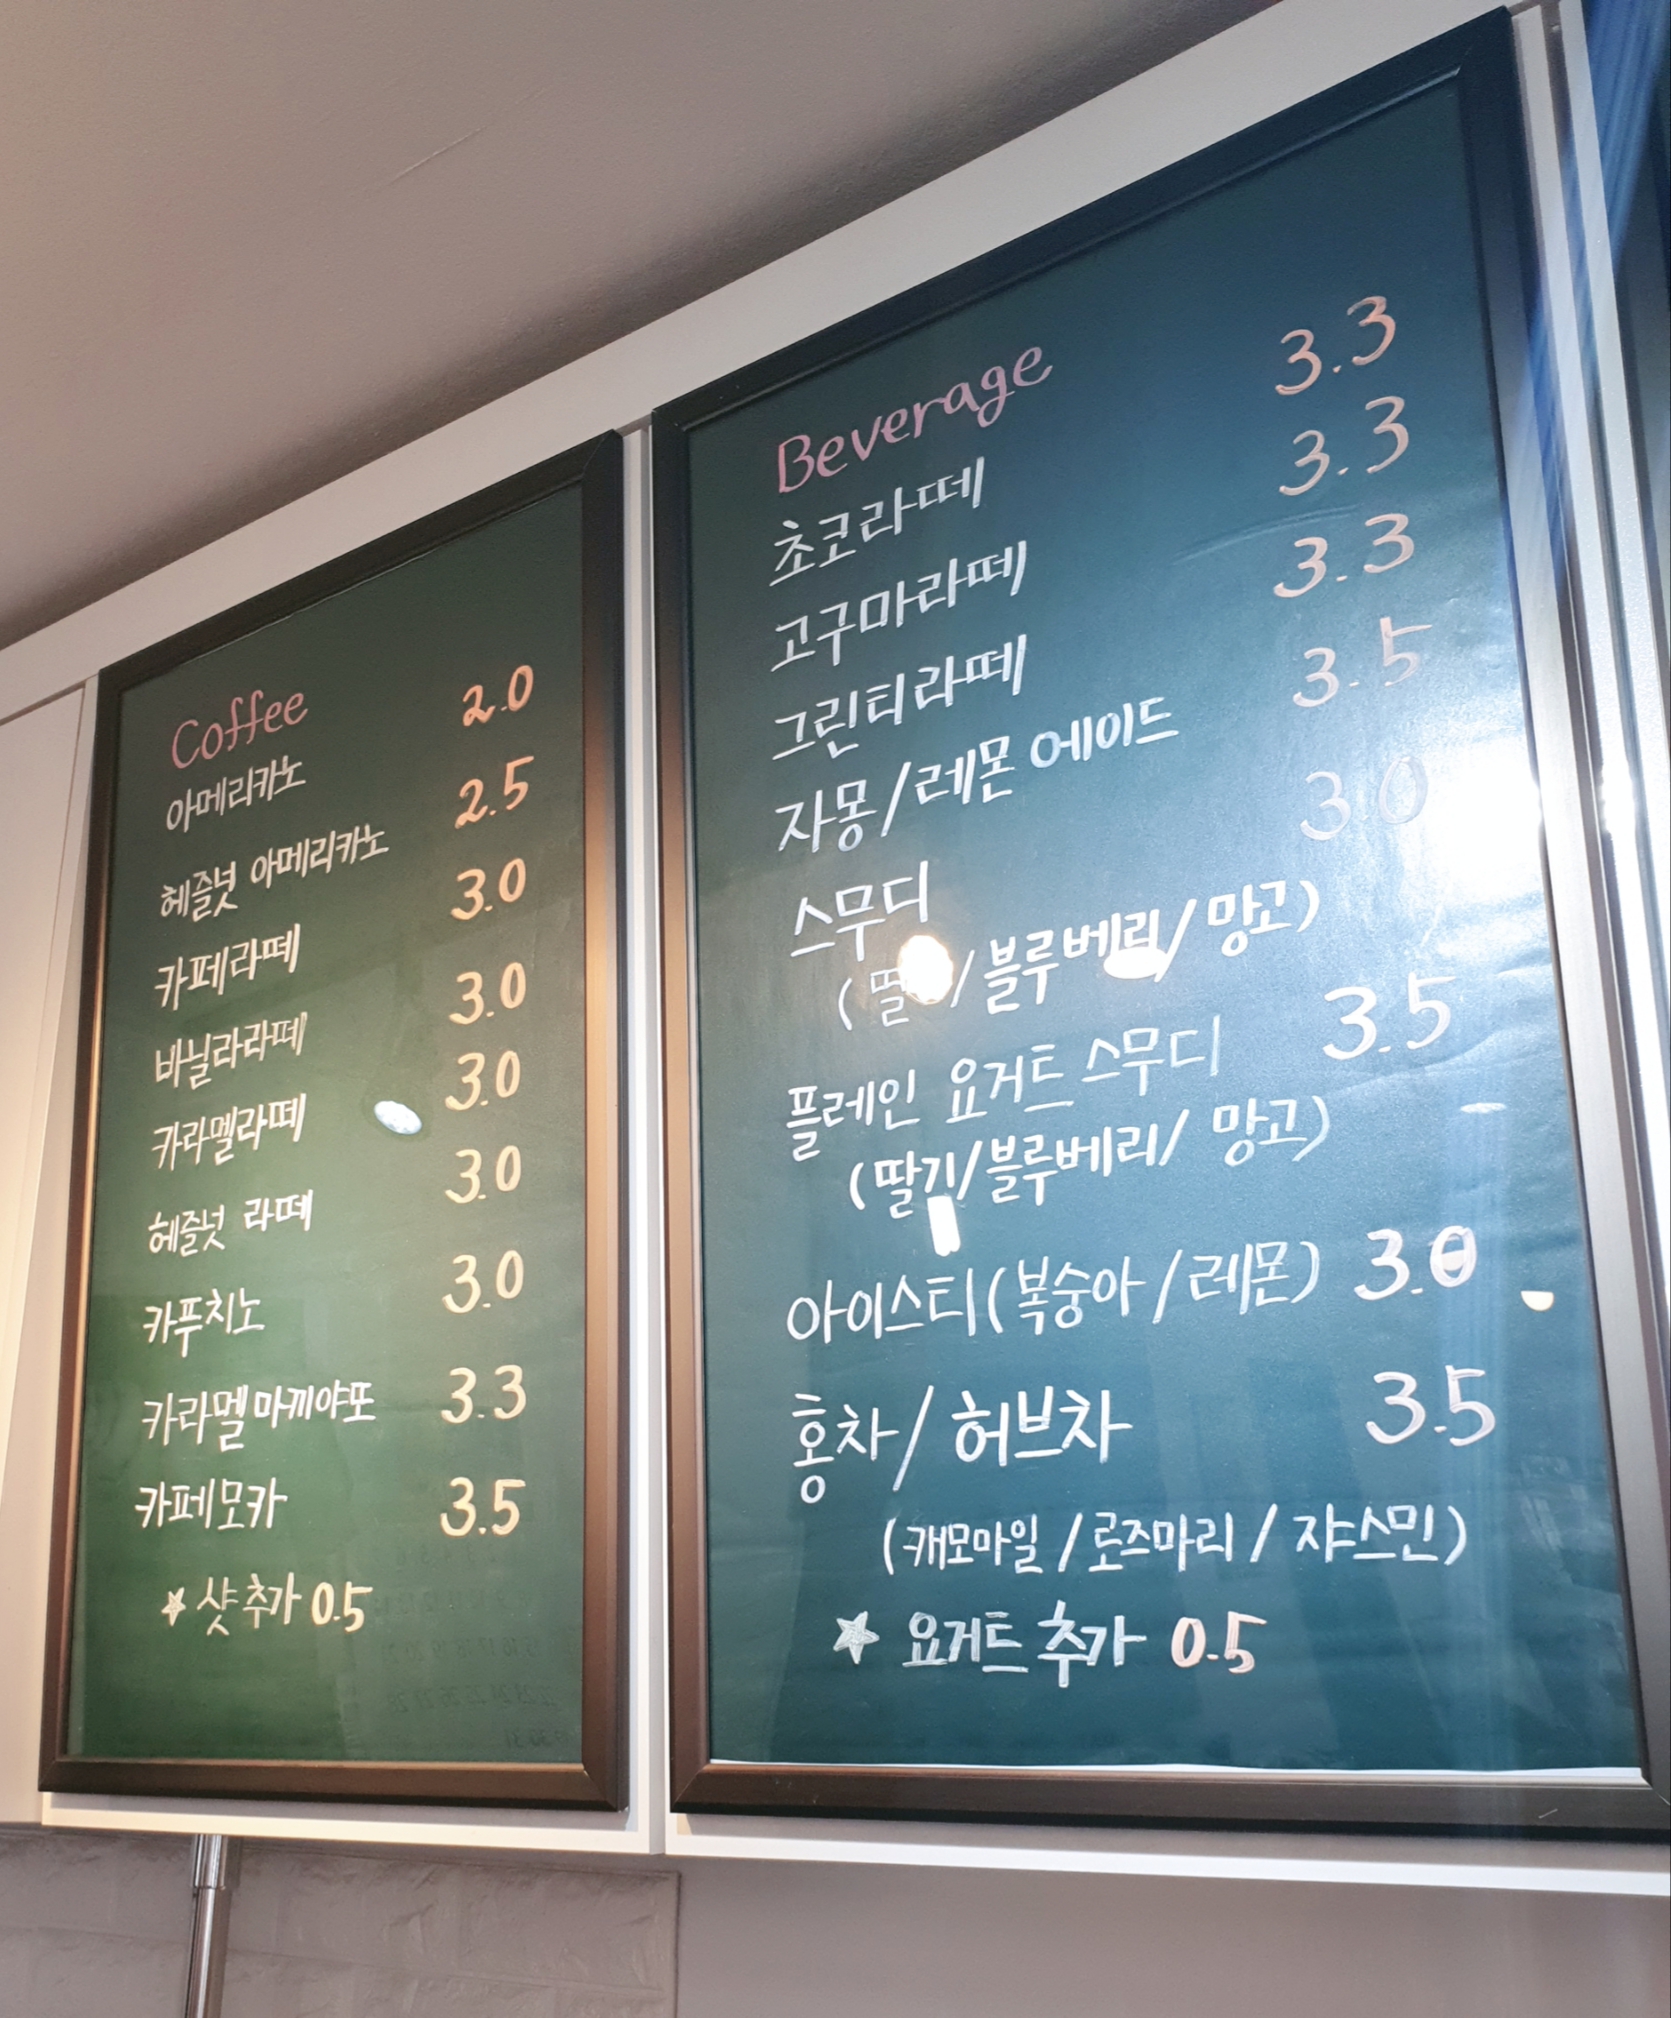 Coffee
아메리카노 2.0
헤즐넛 아메리카노 2.5
카페라떼 3.0
바닐라라떼 3.0
카라멜라떼 3.0
헤즐넛 라떼 3.0
카푸치노 3.0
카라멜마끼야또 3.3
카페모카 3.5
★ 샷추가 0.5
Beverage
초코라떼 3.3
고구마라떼 3.3
그린티라떼 3.3
자몽/레몬에이드 3.5
스무디 3.0
(딸기/블루베리/망고)
플레인 요거트 스무디 3.5
(딸기/블루베리/망고)
아이스티(복숭아/레몬) 3.0
홍차/허브차 3.5
(캐모마일/로즈마리/쟈스민)
★ 요거트 추가 0.5